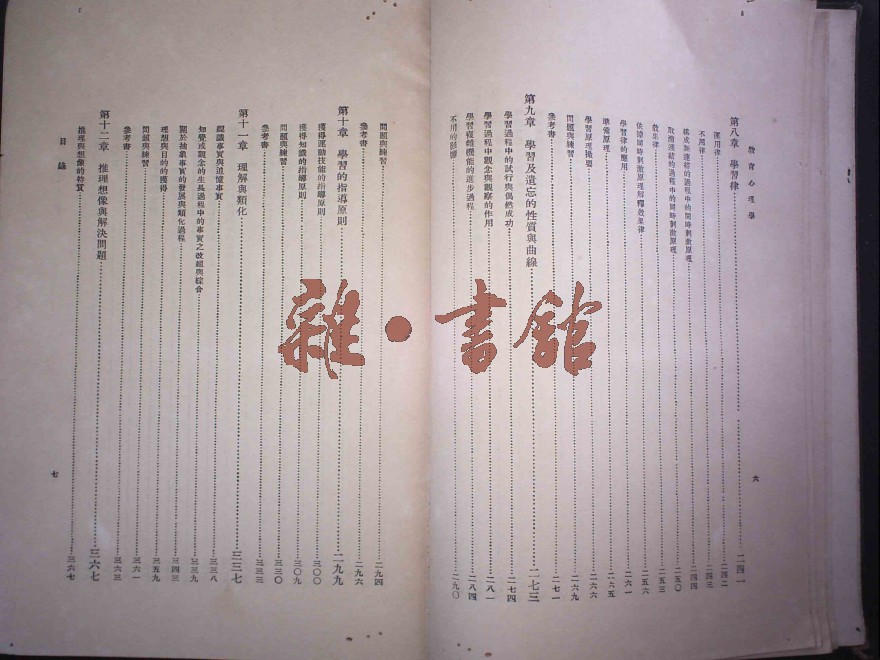 教育心理學
第八章　學習律……二四一
運用律……二四二
不用律……二四三
構成新連結的過程中的同時刺激原理……二四四
取消連結的過程中的同時刺激原理……二五〇
效果律……二五三
依據同時刺激原理解釋效果律……二五六
學習律的應用……二六一
準備原理……二六五
學習原理撮要……二六六
問題與練習……二六九
參考書……二七一
第九章　學習及遺忘的性質與曲線……二七三
學習過程中的試行與偶然成功……二七四
學習過程中觀念與觀察的作用……二八一
學習複雜機能的進步過程……二八四
不用的影響……二九〇
六
問題與練習……二九四
參考書……二九六
第十章　學習的指導原則……二九九
獲得運動技能的指導原則……三〇〇
獲得知識的指導原則……三〇九
問題與練習……三三〇
參考書……三三三
第十一章　理解與類化……三三七
認識事實與追憶事實……三三八
知覺或觀念的生長過程中的事實之改組與綜合……三三九
關於抽象事實的發展與類化過程……三四三
理想與目的的獲得……三五九
問題與練習……三六一
參考書……三六三
第十二章　推理想像與解決問題……三六七
推理與想像的特質……三六七
目錄
七
雜·書館